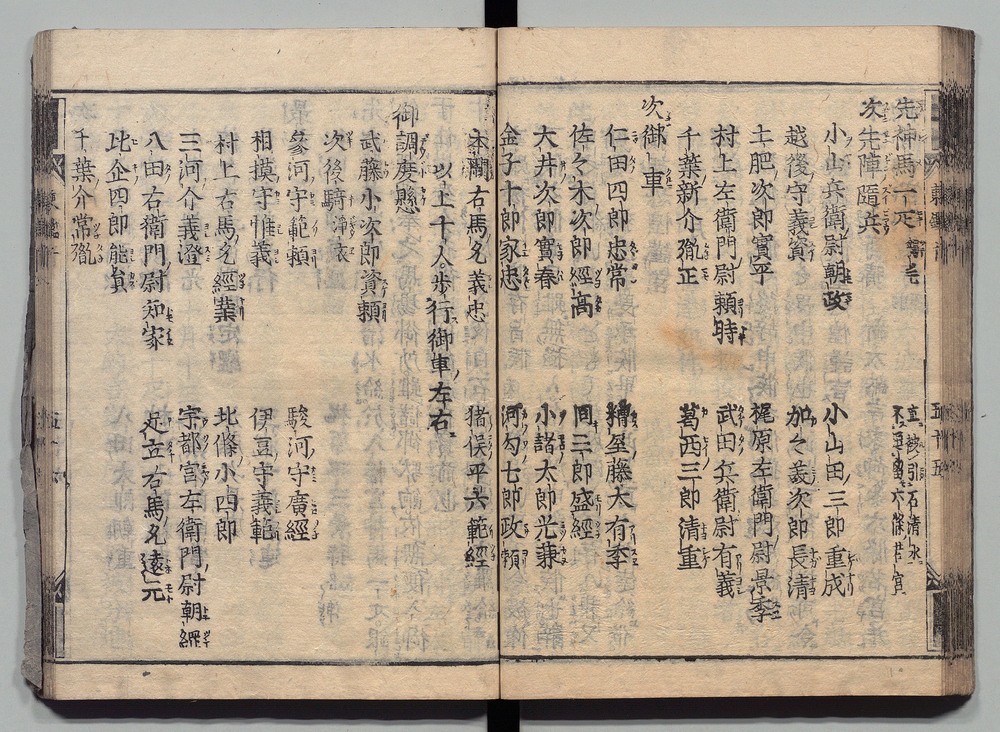 先神馬一疋
次先陣隨兵
小山兵衛尉朝政 小山田三郎重成
越後守義資 加々美次郎長清
土肥次郎實平 梶原左衛門尉景季
村上左衛門尉頼時 武田兵衛尉有義
千葉新介胤正 葛西三郎清重
次御車
仁田四郎忠常 糟屋藤太有季
佐々木次郎經高 同三郎盛經
大井次郎實春 小諸太郎光兼
金子十郎家忠 河勾七郎政頼
本間右馬允義忠 猪俣平六範經
以上十人歩行御車左右
御調度懸
武藤小次郎資頼
次後騎 浄衣
參河守範頼 駿河守廣經
相摸守惟義 伊豆守義範
村上右馬允經業 北條小四郎
三河介義澄 宇都宮左衛門尉朝綱
八田右衛門尉知家 足立右馬允遠元
比企四郎能員
千葉介常胤
五十五